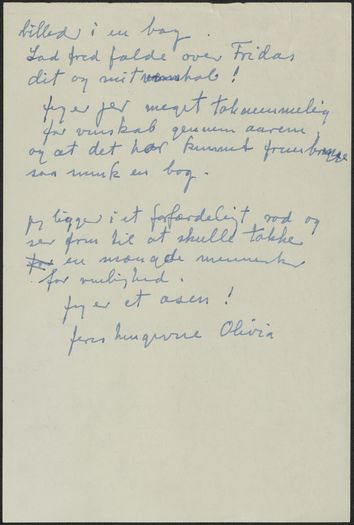 billed i en bog.
Lad fred falde over Fridas
dit og mit venskab!
Jeg er jer meget taknemmelig
for venskab gennem aarene
og at det har kunnet frembringe
saa smuk en bog.
jeg ligger i et forfærdeligt rod og
ser frem til at skulle takke
en mængde mennesker
for venlighed.
Jeg er et asen!
jeres hengivne Olivia